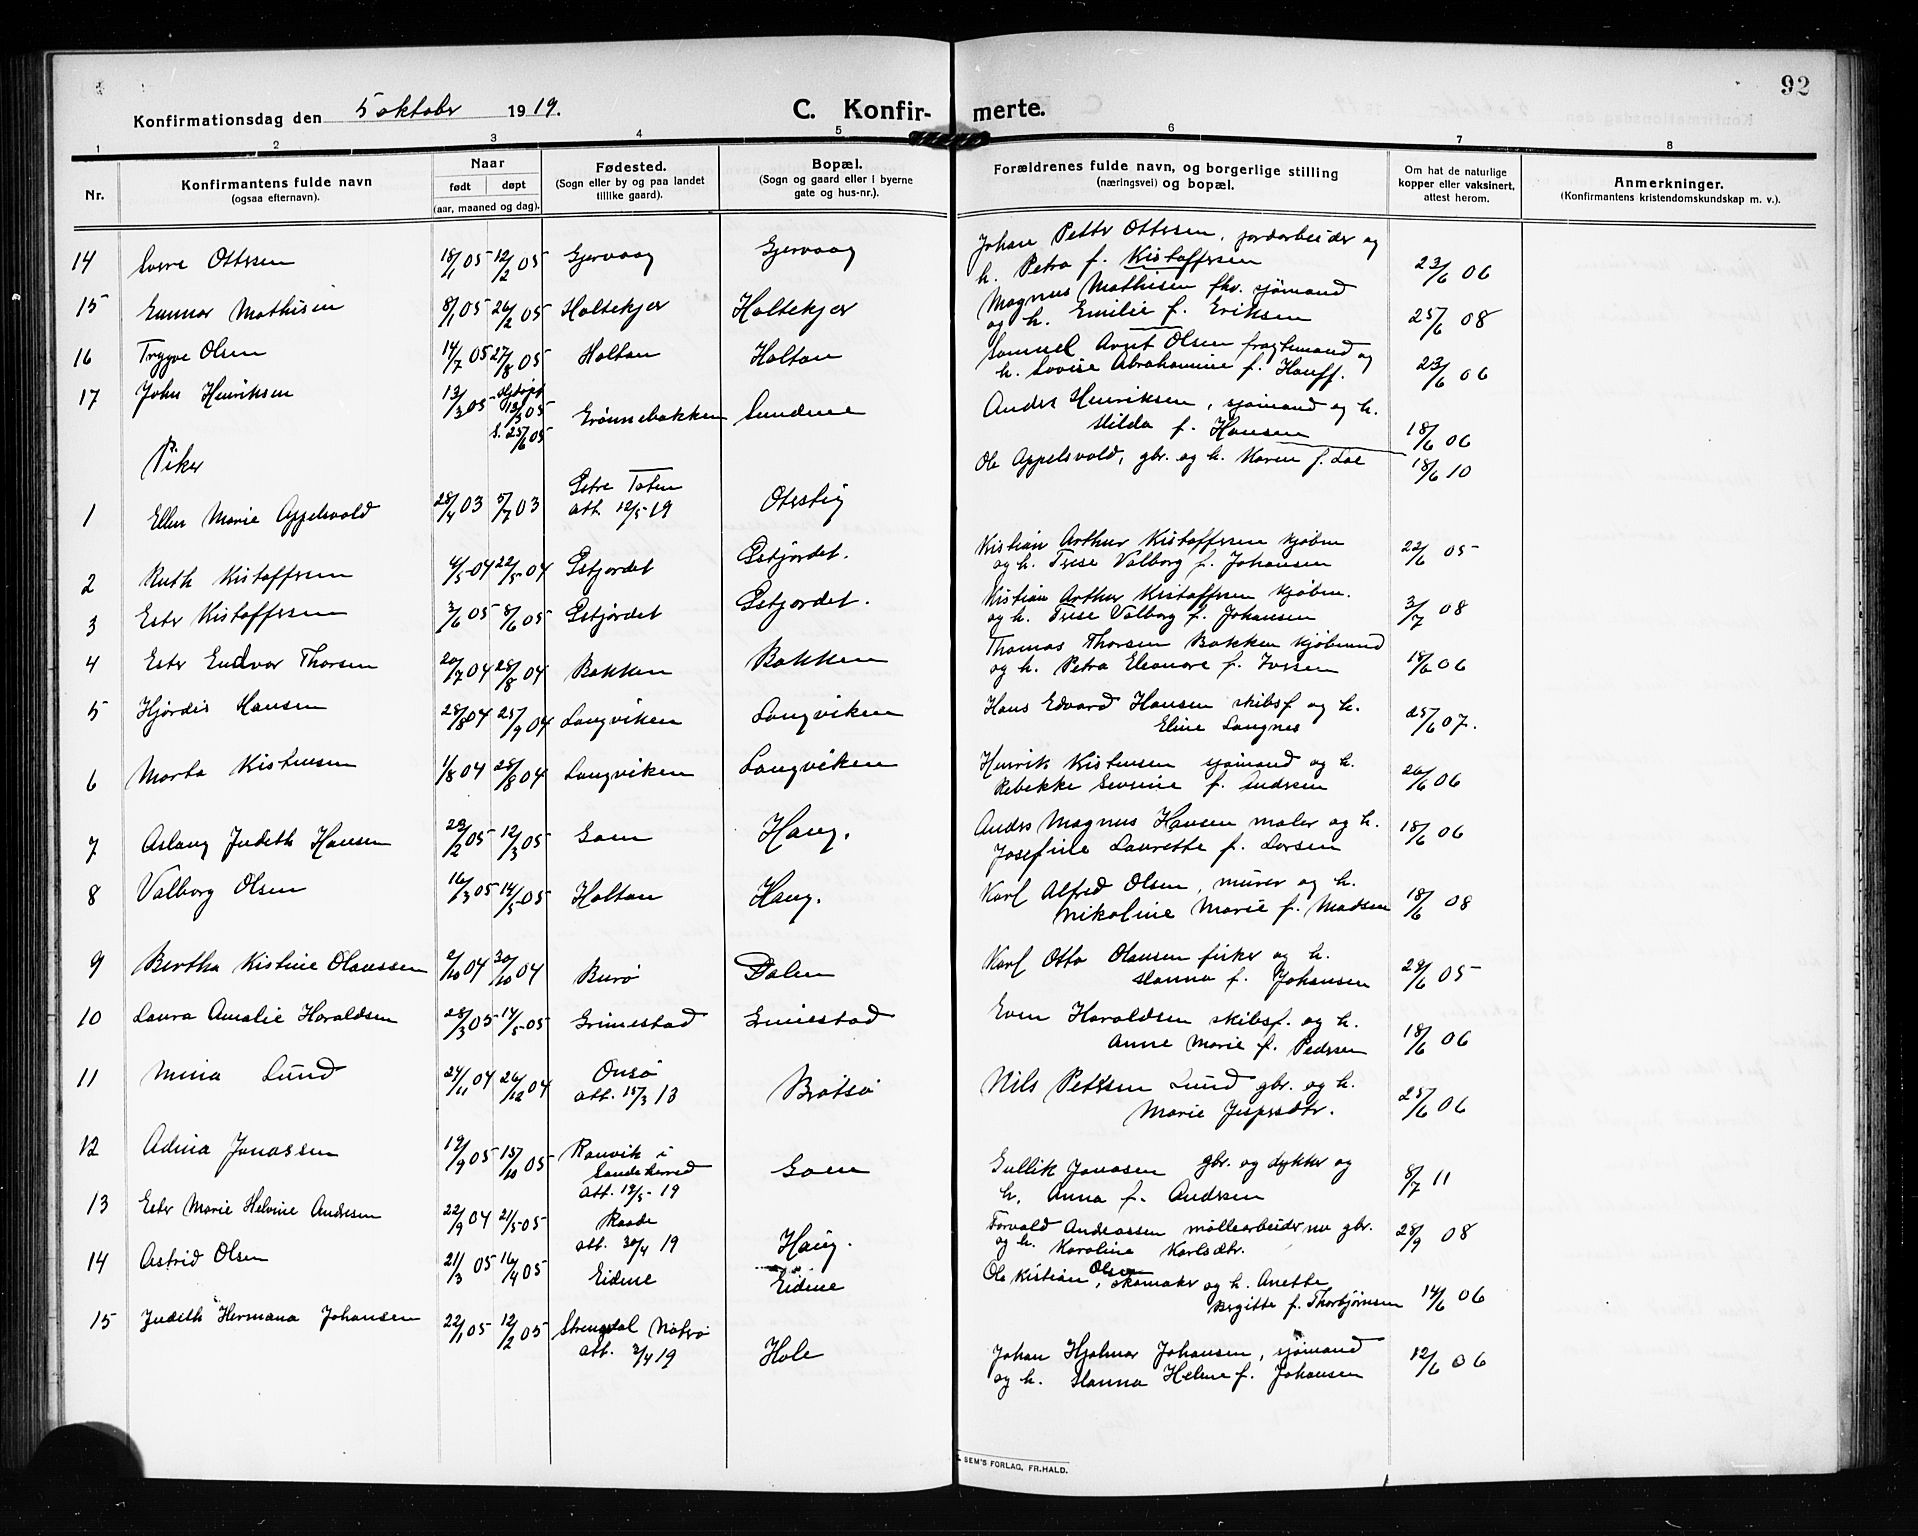 92
Konfirmationsdag den 5 oktober 1919.
C. Konfir- merte.
1 2 3 4 5 6 7 8
Nr.
Konfirmantens fulde navn
(ogsaa efternavn).
Naar
født døpt
(aar, maaned og dag).
Fødested.
(Sogn eller by og paa landet
tillike gaard).
Bopæl.
(Sogn og gaard eller i byerne
gate og hus-nr.).
Forældrenes fulde navn, og borgerlige stilling
(næringsvei) og bopæl.
Om hat de naturlige
kopper eller vaksinert,
attest herom.
Anmerkninger.
(Konfirmantens kristendomskundskap m. v.).
14 Sverre Ottersen 18/1 05 12/2 05 Gjervaag Gjervaag Johan Petter Ottersen, jordarbeider og
h. Petra f. Kristoffersen 23/6 06
15 Gunnar Mathisen 8/1 05 26/2 05 Holtekjær Holtekjær Magnus Mathisen fhv. sjömand
og h. Emilie f. Eriksen 25/6 08
16 Trygve Olsen 14/7 05 27/8 05 Holtan Holtan Samuel Arnt Olsen fragtemand og
h. Lovise Abrahamine f. Hauff. 23/6 06
17 John Henriksen 13/3 05 hjdøpt 13/3 05
S. 25/6 05 Grönnebakken Sundene Anders Henriksen, sjömand og h.
Hilda f. Hansen 18/6 06
Piker
1 Ellen Marie Appelsvold 28/4 03 5/7 03 Østre Toten
att. 12/5 19 Oterstig Ole Appelsvold, gbr. og h. Karen f. Loe 18/6 10
2 Ruth Kristoffersen 4/5 04 22/5 04 Østjordet Østjordet. Kristian Arthur Kristoffersen kjöbm
og h. Trese Valborg f. Johansen 22/6 05
3 Ester Kristoffersen 3/6 05 8/6 05 Østjordet Østjordet. Kristian Arthur Kristoffersen kjöbm.
og h. Trese Valborg f. Johansen 3/7 08
4 Ester Endvor Thorsen 20/7 04 28/8 04 Bakken Bakken Thomas Thorsen Bakken kjöbmand
og h. Petra Eleonore f. Iversen 18/6 06
5 Hjördis Hansen 28/8 04 25/9 04 Langviken Langviken Hans Edvard Hansen skibsf og h.
Eline Langnes 25/6 07.
6 Marta Kristensen 1/8 04 28/8 04 Langviken Langviken Henrik Kristensen sjömand og h.
Rebekke Severine f. Andersen 26/6 06
7 Aslaug Judith Hansen 23/2 05 12/3 05 Goen Haug. Anders Magnus Hansen maler og h.
Josefine Laurette f. Larsen 18/6 06
8 Valborg Olsen 16/3 05 14/5 05 Holtan Haug. Karl Alfred Olsen, murer og h.
Nikoline Marie f. Madsen 18/6 08
9 Bertha Kristine Olaussen 2/10 04 30/10 04 Burö Dalen Karl Otto Olausen fisker og h.
Hanna f. Johansen 29/6 05
10 Laura Amalie Haraldsen 28/3 05 14/5 05 Grimestad Grimestad Even Haraldsen skibsf. og h.
Anne Marie f. Pedersen 18/6 06
11 Mina Lund 24/11 04 26/12 04 Onsö
att. 15/3 13 Bratsö Nils Pettersen Lund gbr. og h.
Marie Jespersdtr. 25/6 06
12 Adina Jonassen 19/9 05 15/10 05 Ranvik i
Sandeherred
att. 12/5 19 Goen Gullik Jonasen gbr. og dykker og
h. Anna f. Andersen 8/7 11
13 Ester Marie Helvine Andresen 22/9 04 21/5 05 Raade
att. 30/4 19 Haug. Torvald Andreassen möllearbeider nu gbr.
og h. Karoline Karlsdtr. 28/9 08
14 Astrid Olsen 21/3 05 16/4 05 Eidene Eidene Ole Kristian Olsen, skomaker og h. Anette
Birgitte f. Thorbjørnsen 14/6 06
15 Judith Hermana Johansen 22/1 05 12/2 05 Strengsdal Nöterö
att. 2/4 19 Hole Johan Hjalmar Johansen, sjömand
og h. Hanna Helene f. Johansen 12/6 06
SEM'S FORLAG, FR.HALD.